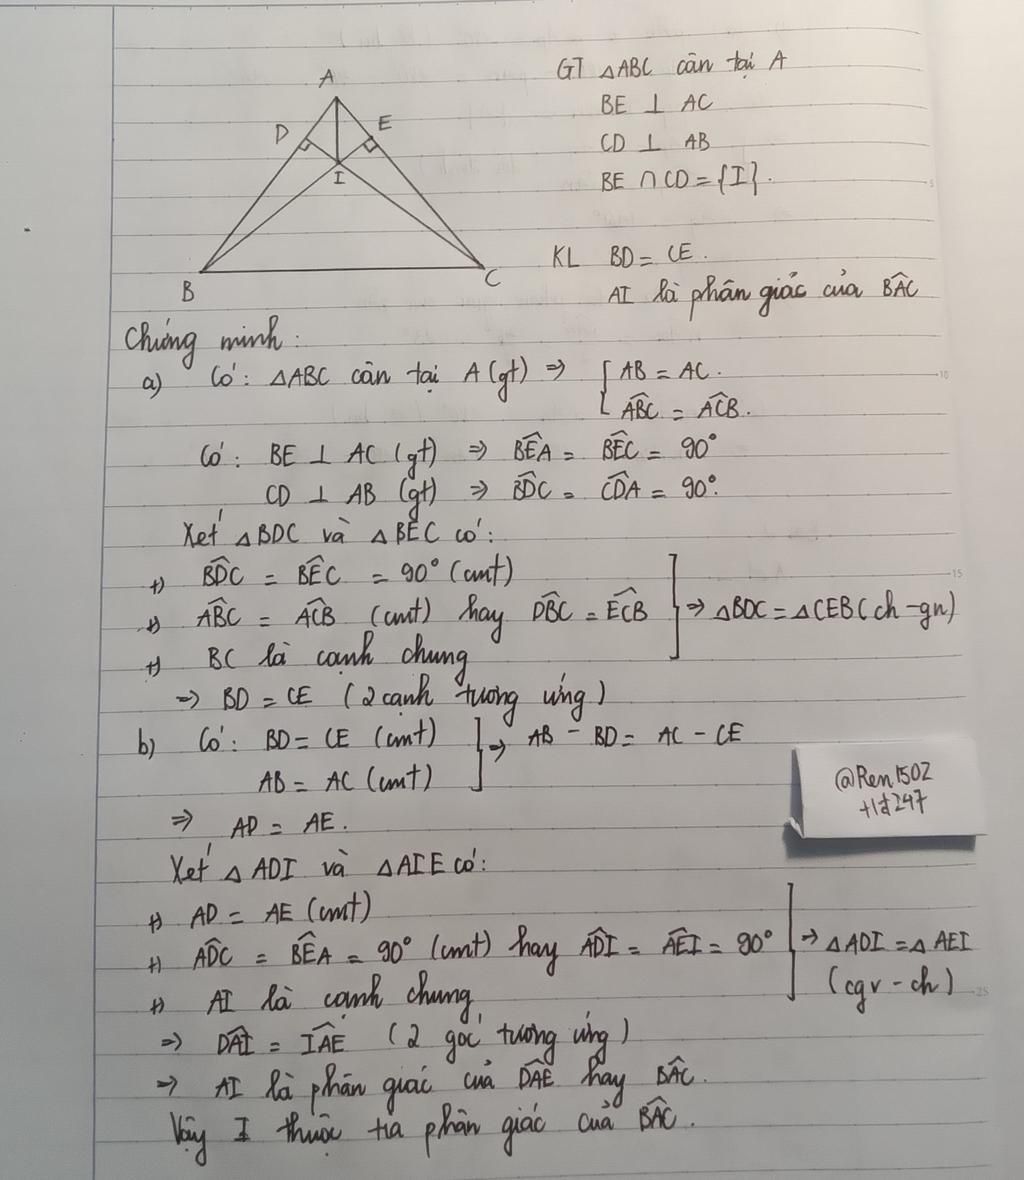 A
D
E
I
B
C
GT △ABC cân tại A
BE ⊥ AC
CD ⊥ AB
BE ∩ CD = {I}.
KL BD = CE.
AI là phân giác của B̂AC
Chứng minh:
a) Có: △ABC cân tại A (gt) ⇒ { AB = AC.
ÂBC = ÂCB.
Có: BE ⊥ AC (gt) ⇒ B̂EA = B̂EC = 90°
CD ⊥ AB (gt) ⇒ B̂DC = ĈDA = 90°.
Xét △BDC và △BEC có:
+) B̂DC = B̂EC = 90° (cmt)
+) ÂBC = ÂCB (cmt) hay D̂BC = ÊCB ] ⇒ △BDC = △CEB (ch - gn)
+) BC là cạnh chung
⇒ BD = CE (2 cạnh tương ứng)
b) Có: BD = CE (cmt) ] ⇒ AB - BD = AC - CE
AB = AC (cmt)
⇒ AD = AE.
@Ren1502
+1đ247
Xét △ADI và △AIE có:
+) AD = AE (cmt)
+) ÂDC = B̂EA = 90° (cmt) hay ÂDI = ÂEI = 90° ] ⇒ △ADI = △AEI
+) AI là cạnh chung (cgv - ch)
⇒ D̂AI = ÎAE (2 góc tương ứng)
⇒ AI là phân giác của D̂AE hay B̂AC.
Vậy I thuộc tia phân giác của B̂AC.
5
10
15
25